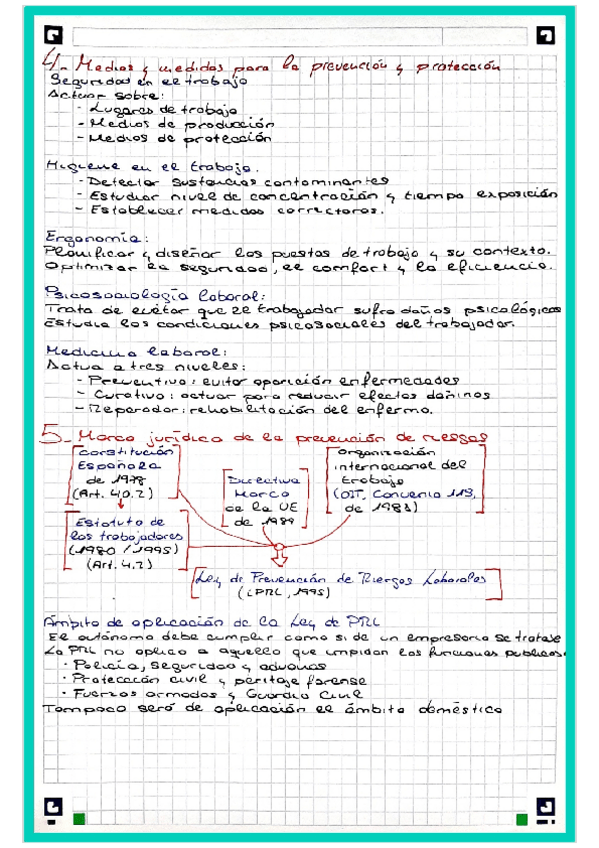 4_ Medios y medidas para la prevención y protección
Seguridad en el trabajo
Actuar sobre:
- Lugares de trabajo
- Medios de producción
- Medios de protección
Higiene en el trabajo.
- Detectar sustancias contaminantes
- Estudiar nivel de concentración y tiempo exposición
- Establecer medidas correctoras.
Ergonomía:
Planificar y diseñar los puestos de trabajo y su contexto.
Optimizar la seguridad, el comfort y la eficiencia.
Psicosociología laboral:
Trata de evitar que el trabajador sufra daños psicológicos
Estudia las condiciones psicosociales del trabajador.
Medicina laboral:
Actua a tres niveles:
- Preventivo: evitar aparición enfermedades
- Curativo: actuar para reducir efectos dañinos
- Reparador: rehabilitación del enfermo.
5_ Marco jurídico de la prevención de riesgos
Constitución
Española
de 1978
(Art. 40.2)
Estatuto de
los trabajadores
(1980 / 1995)
(Art. 4.2)
Directiva
Marco
de la UE
de 1989
Organización
internacional del
trabajo
(OIT, Convenio 113,
de 1983)
Ley de Prevención de Riesgos Laborales
(LPRL, 1995)
Ámbito de aplicación de la Ley de PRL
El autónomo debe cumplir como si de un empresario se tratase
La PRL no aplica a aquello que impidan las funciones publicas.
· Policía, seguridad y aduanas
· Protección civil y peritaje forense
· Fuerzas armadas y Guardia Civil
Tampoco será de aplicación el ámbito doméstico